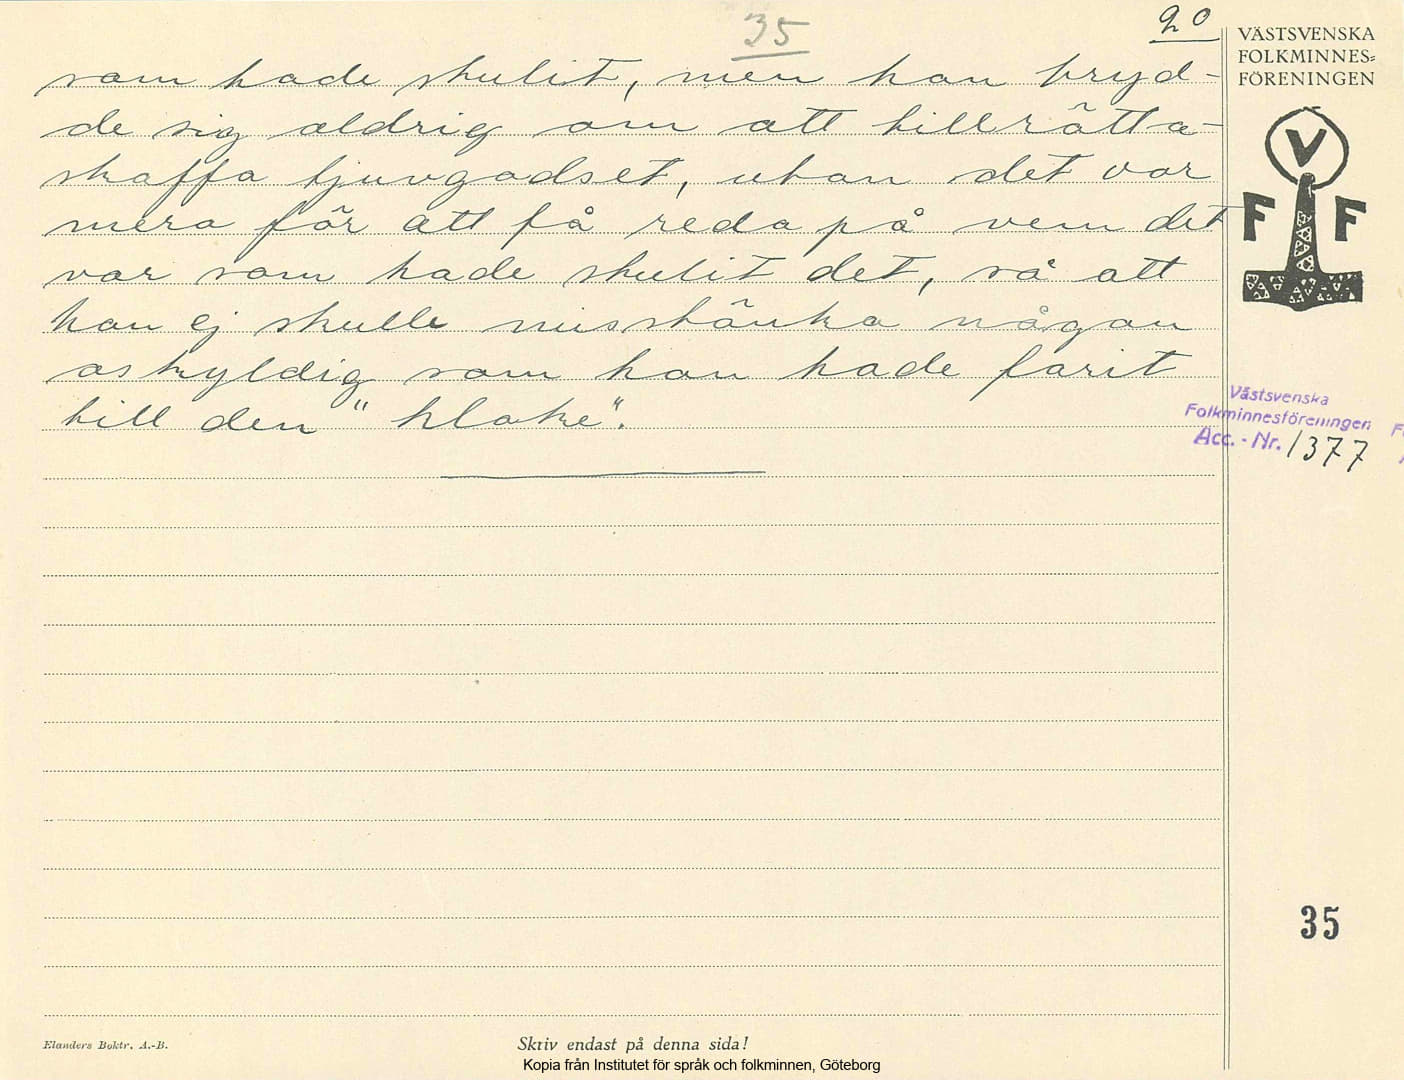 35
20
som hade stulit, men han bryd-
de sig aldrig om att tillrätta-
skaffa tjuvgodset, utan det var
mera för att få reda på vem det
var som hade stulit det, så att
han ej skulle misstänka någon
oskyldig som han hade farit
till den "kloke".
VÄSTSVENSKA
FOLKMINNES=
FÖRENINGEN
V
F F
Västsvenska
Folkminnesföreningen
Acc. - Nr. 1377
35
Elanders Boktr. A.-B.
Skriv endast på denna sida!
Kopia från Institutet för språk och folkminnen, Göteborg